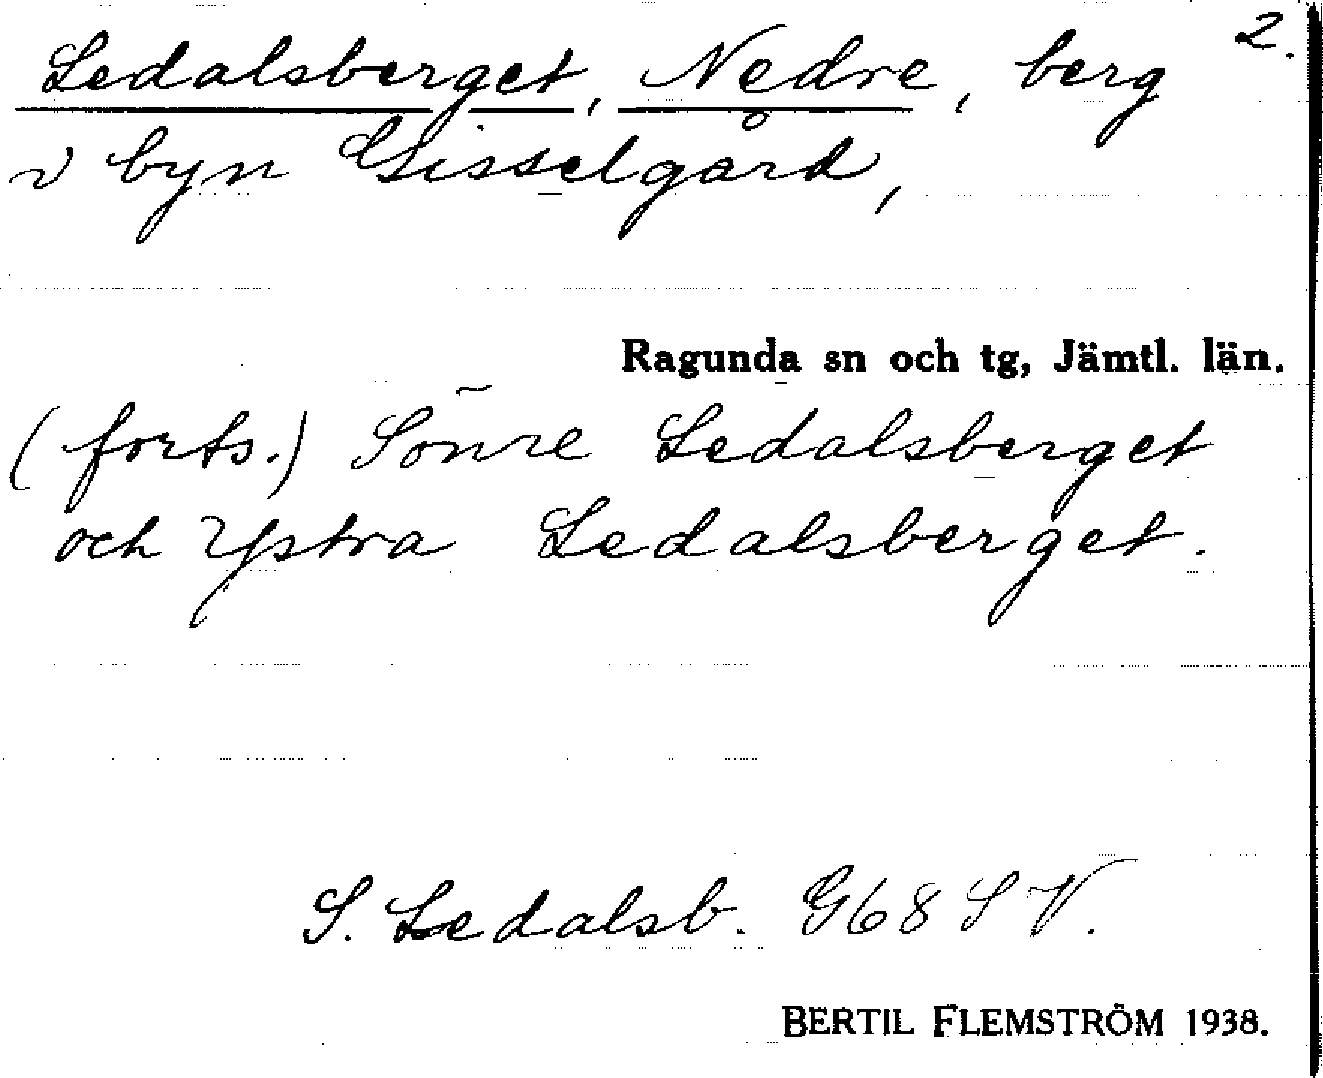 2.
Ledalsberget, Nedre, berg
v byn Gisselgård,
Ragunda sn och tg, Jämtl. län.
(forts.) Sönre Ledalsberget
och Ystra Ledalsberget.
S. Ledalsb. G68 SV.
BERTIL FLEMSTRÖM 1938.